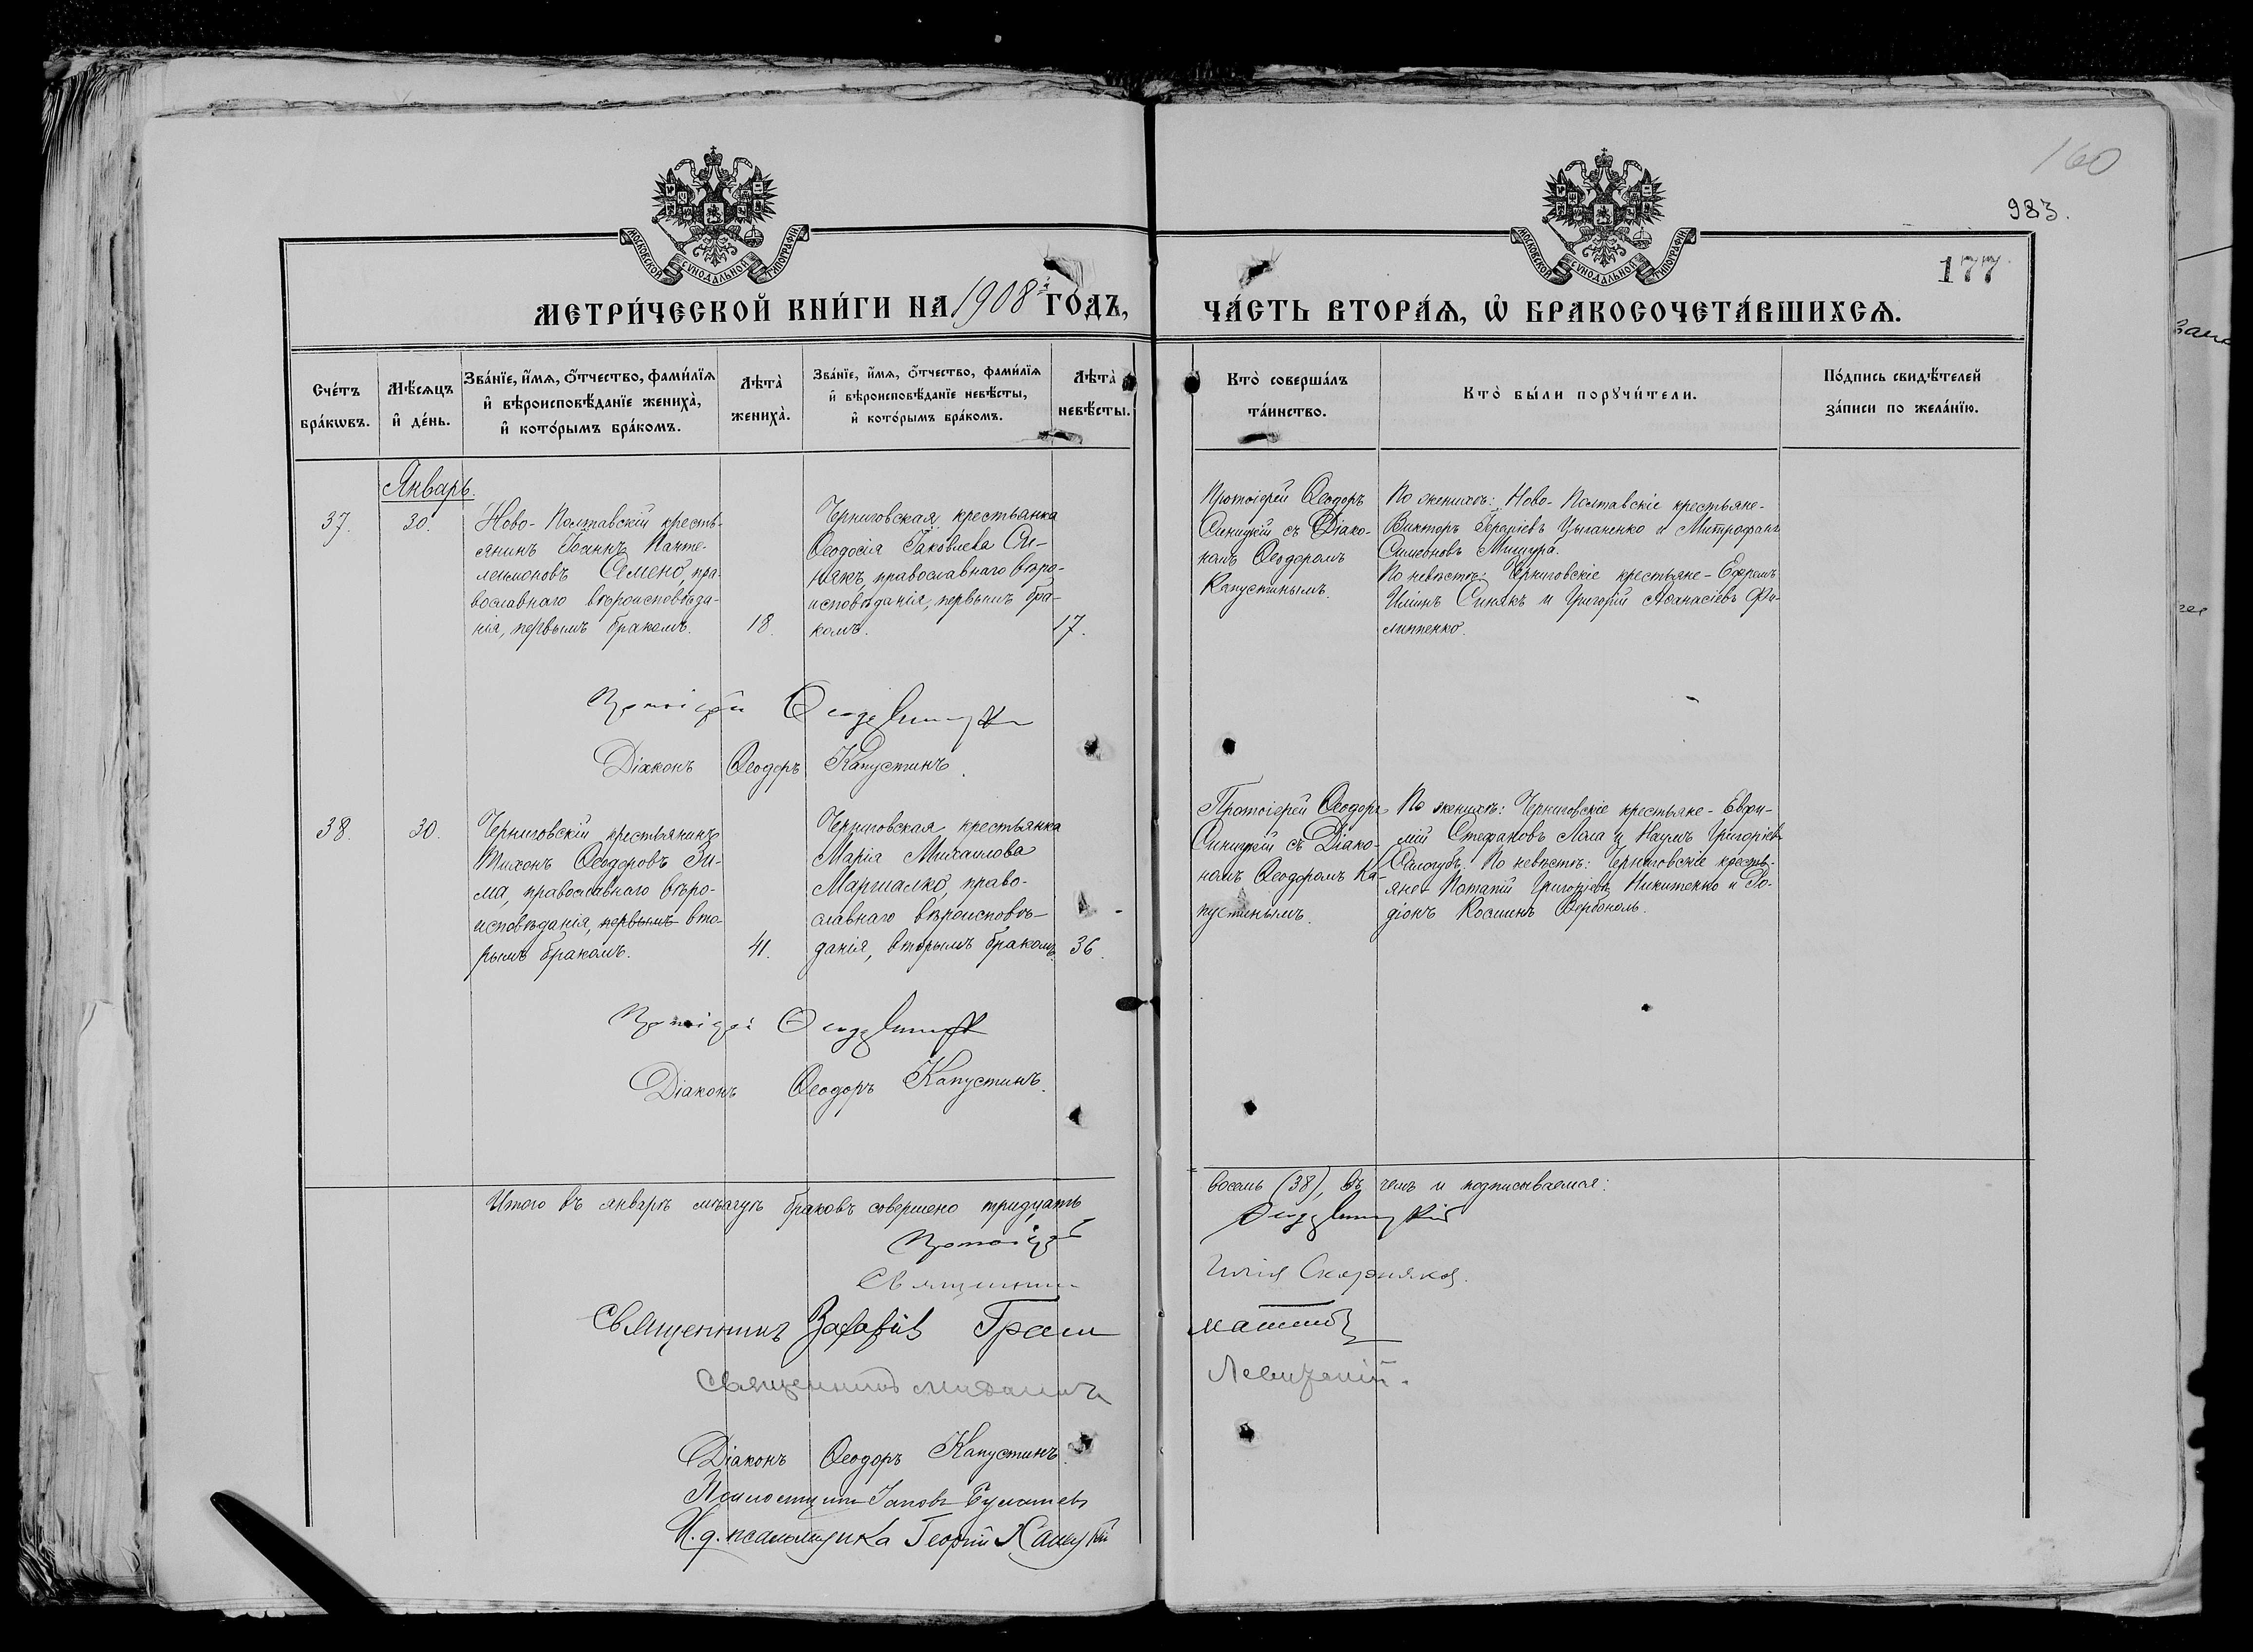 160
983.
177
МОСКОВСКОЙ СѴНОДАЛЬНОЙ ТИПОГРАФІИ
МОСКОВСКОЙ СѴНОДАЛЬНОЙ ТИПОГРАФІИ
МЕТРИ́ЧЕСКОЙ КНИ́ГИ НА 1908й ГО́ДЪ,
ЧА́СТЬ ВТОРА́Ѧ, Ѡ҆ БРАКОСОЧЕТА́ВШИХСѦ.
Сче́тъ
бра́кѡвъ.
Мѣ́сѧцъ
и҆ де́нь.
Зва́нїе, и҆́мѧ, ѻ҆́тчество, фами́лїѧ
и҆ вѣроисповѣ́данїе жениха̀,
и҆ кото́рымъ бра́комъ.
Лѣта̀
жениха̀.
Зва́нїе, и҆́мѧ, ѻ҆́тчество, фами́лїѧ
и҆ вѣроисповѣ́данїе невѣ́сты,
и҆ кото́рымъ бра́комъ.
Лѣта̀
невѣ́сты.
Кто̀ соверша́лъ
та́инство.
Кто̀ бы́ли порꙋчи́тели.
По́дпись свидѣ́телей
за́писи по жела́нїю.
Январь.
37.
30.
Ново-Полтавскій кресть-
янинъ Іоаннъ Панте-
леимоновъ Семено, пра-
вославнаго вѣроисповѣда-
нія, первымъ бракомъ.
18.
Черниговская крестьянка
Ѳеодосія Іаковлева Си-
някъ, православнаго вѣро-
исповѣданія, первымъ бра-
комъ.
17.
Протоіерей Ѳеодоръ
Синицкій съ Діако-
номъ Ѳеодоромъ
Капустинымъ.
По женихѣ: Ново-Полтавскіе крестьяне-
Викторъ Цыганенко и Митрофанъ
Симеоновъ Мишура.
По невѣстѣ: Черниговскіе крестьяне-Ефремъ
Иліинъ Синякъ и Григорій Аѳанасіевъ Фи-
липенко.
Протоіерей Ѳеодоръ Синицкій
Діаконъ Ѳеодоръ Капустинъ.
38.
30.
Черниговскій крестьянинъ
Тихонъ Ѳеодоровъ Зи-
ма, православнаго вѣро-
исповѣданія, первымъ вто-
рымъ бракомъ.
41.
Черниговская крестьянка
Марія Михаилова
Маршалко, право-
славнаго вѣроисповѣ-
данія, вторымъ бракомъ.
36.
Протоіерей Ѳеодоръ
Синицкій съ Діако-
номъ Ѳеодоромъ Ка-
пустинымъ.
По женихѣ: Черниговскіе крестьяне-Евфи-
мій Стефановъ Лола и Наумъ Григоріевъ
По невѣстѣ: Черниговскіе кресть-
яне-Потапій Григоріевъ Никитенко и Ро-
діонъ Косминъ
Протоіерей Ѳеодоръ Синицкій
Діаконъ Ѳеодоръ Капустинъ.
Итого въ январѣ мѣсяцѣ браковъ совершено тридцать
восемь (38), въ чемъ и подписываемся:
Протоіерей Ѳеодоръ Синицкій
Священникъ Илія Скорняковъ.
Священникъ Захарій Грам матинъ
Священникъ Михаилъ Левитскій.
Діаконъ Ѳеодоръ Капустинъ.
Псаломщикъ Іаковъ
И. д. псаломщика Георгій